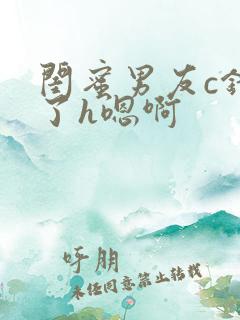 闺蜜男友c错
了h嗯啊
呼朋
未经同意禁止转载